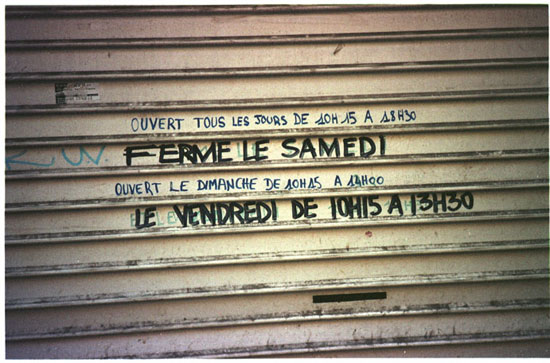 OUVERT TOUS LES JOURS DE 10H15 A 18H30
FERME LE SAMEDI
OUVERT LE DIMANCHE DE 10H15 A 14H00
LE VENDREDI DE 10H15 A 13H30